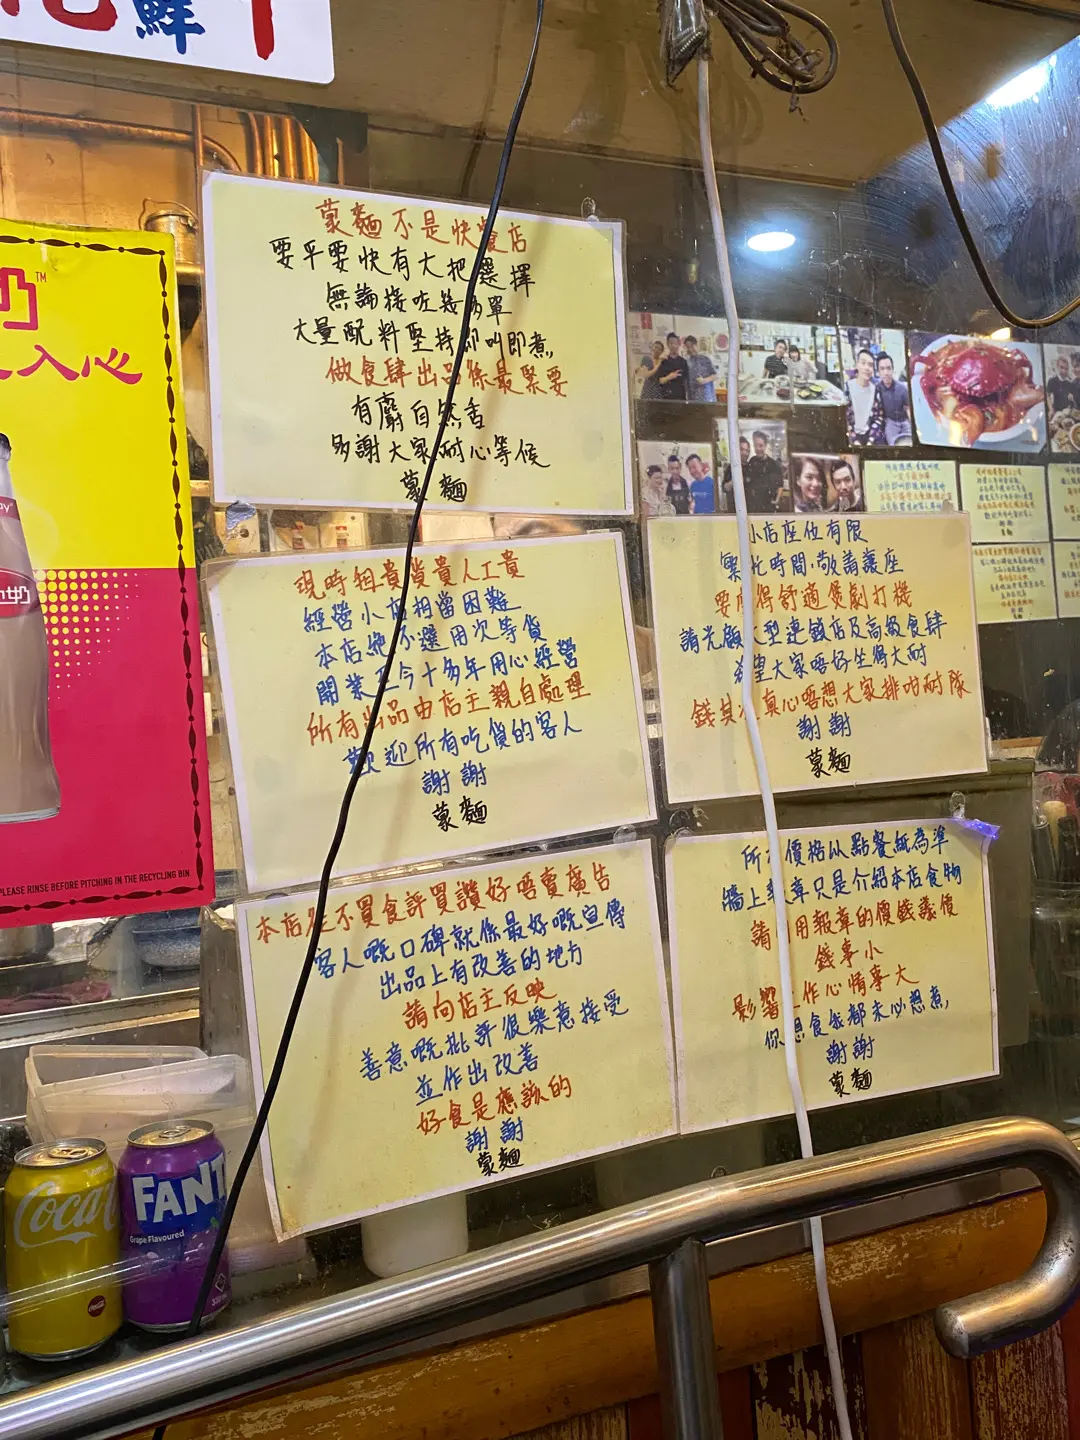 鮮
奶
TM
入心
PLEASE RINSE BEFORE PITCHING IN THE RECYCLING BIN
Coca
FANT
Grape Flavoured
蒙麵不是快餐店
要平要快有大把選擇
無論接咗幾多單
大量配料堅持即叫即煮
做食肆出品係最緊要
有麝自然香
多謝大家耐心等候
蒙麵
現時租貴貨貴人工貴
經營小店相當困難
本店絕不選用次等貨
開業至今十多年用心經營
所有出品由店主親自處理
歡迎所有吃貨的客人
謝謝
蒙麵
本店從不買食評買讚好唔賣廣告
客人嘅口碑就係最好嘅宣傳
出品上有改善的地方
請向店主反映
善意嘅批評很樂意接受
並作出改善
好食是應該的
謝謝
蒙麵
小店座位有限
繁忙時間敬請讓座
要 得舒適煲劇打機
請光顧大型連鎖店及高級食肆
希望大家唔好坐得太耐
錢其次真心唔想大家排咁耐隊
謝謝
蒙麵
所有價格以點餐紙為準
牆上報章只是介紹本店食物
請 用報章的價錢議價
錢事小
影響工作心情事大
你想食我都未必想煮
謝謝
蒙麵